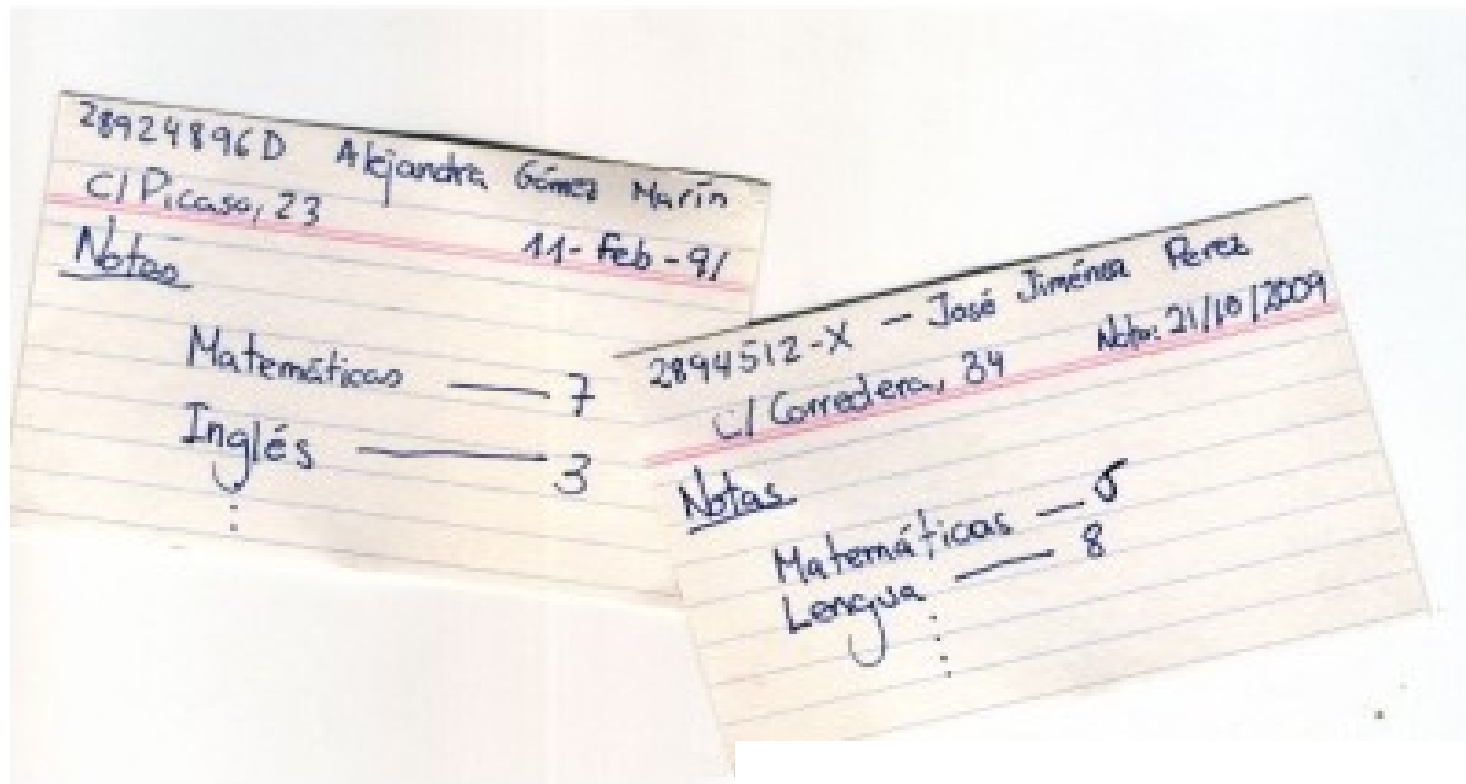 28924896D Alejandra Gómez Marín
C/ Picaso, 23
11-Feb-91
Notas
Matemáticas — 7
Inglés — 3
2894512-X — José Jiménez Perez
C/ Corredera, 34 21/10/2009
Notas
Matemáticas —
Lengua — 8